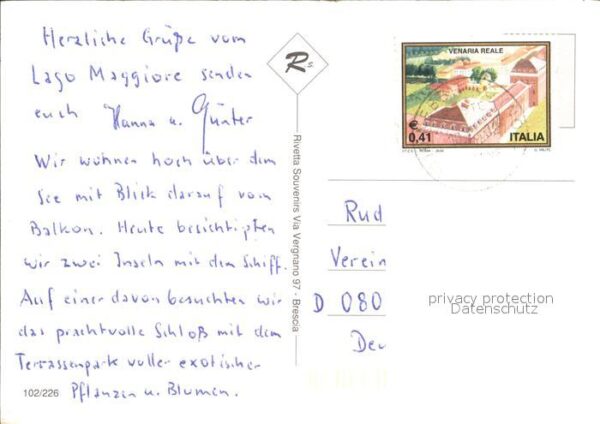 Herzliche Grüße vom
Lago Maggiore senden
euch Hanna u. Günter
Wir wohnen hoch über dem
See mit Blick darauf vom
Balkon. Heute besichtigten
wir zwei Inseln mit dem Schiff.
Auf einer davon besuchten wir
das prachtvolle Schloß mit dem
Terrassenpark voller exotischer
Pflanzen u. Blumen.
102/226
Rs
Rivetta Souvenirs Via Vergnano 97 - Brescia
VENARIA REALE
€ 0,41 ITALIA
Rud
Verein
D 080
Deu
privacy protection
Datenschutz